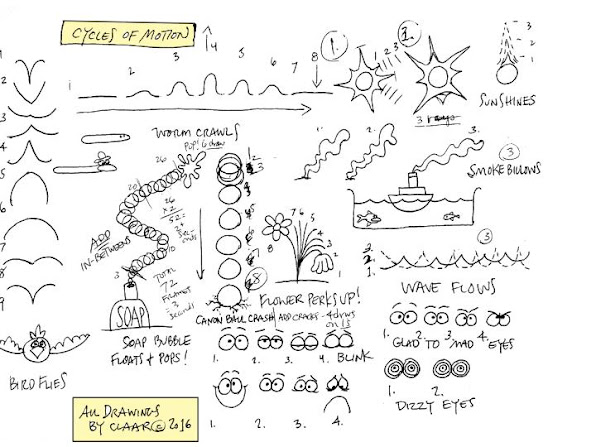 CYCLES OF MOTION
4
1
2
3
5
6
7
8
1.
1 2 3
2.
3
2
1
SUNSHINES
3
WORM CRAWLS
POP!
1.
2.
3.
3
SMOKE BILLOWS
26
20
10
26
X 2
52=
ADD
IN-BETWEENS
TOTAL
72
3
SECONDS
SOAP
SOAP BUBBLE
FLOATS & POPS!
8
7 6 5
4
3
2
1
FLOWER PERKS UP!
CANON BALL CRASH ADD CRACKS - 4 draws
on 1s
3
3.
2.
1.
WAVE FLOWS
1. 2. 3. 4. BLINK
1. 2. 3. 4.
GLAD TO MAD EYES
1. 2.
DIZZY EYES
1. 2. 3. 4.
BIRD FLIES
ALL DRAWINGS
BY CLAAR © 2016